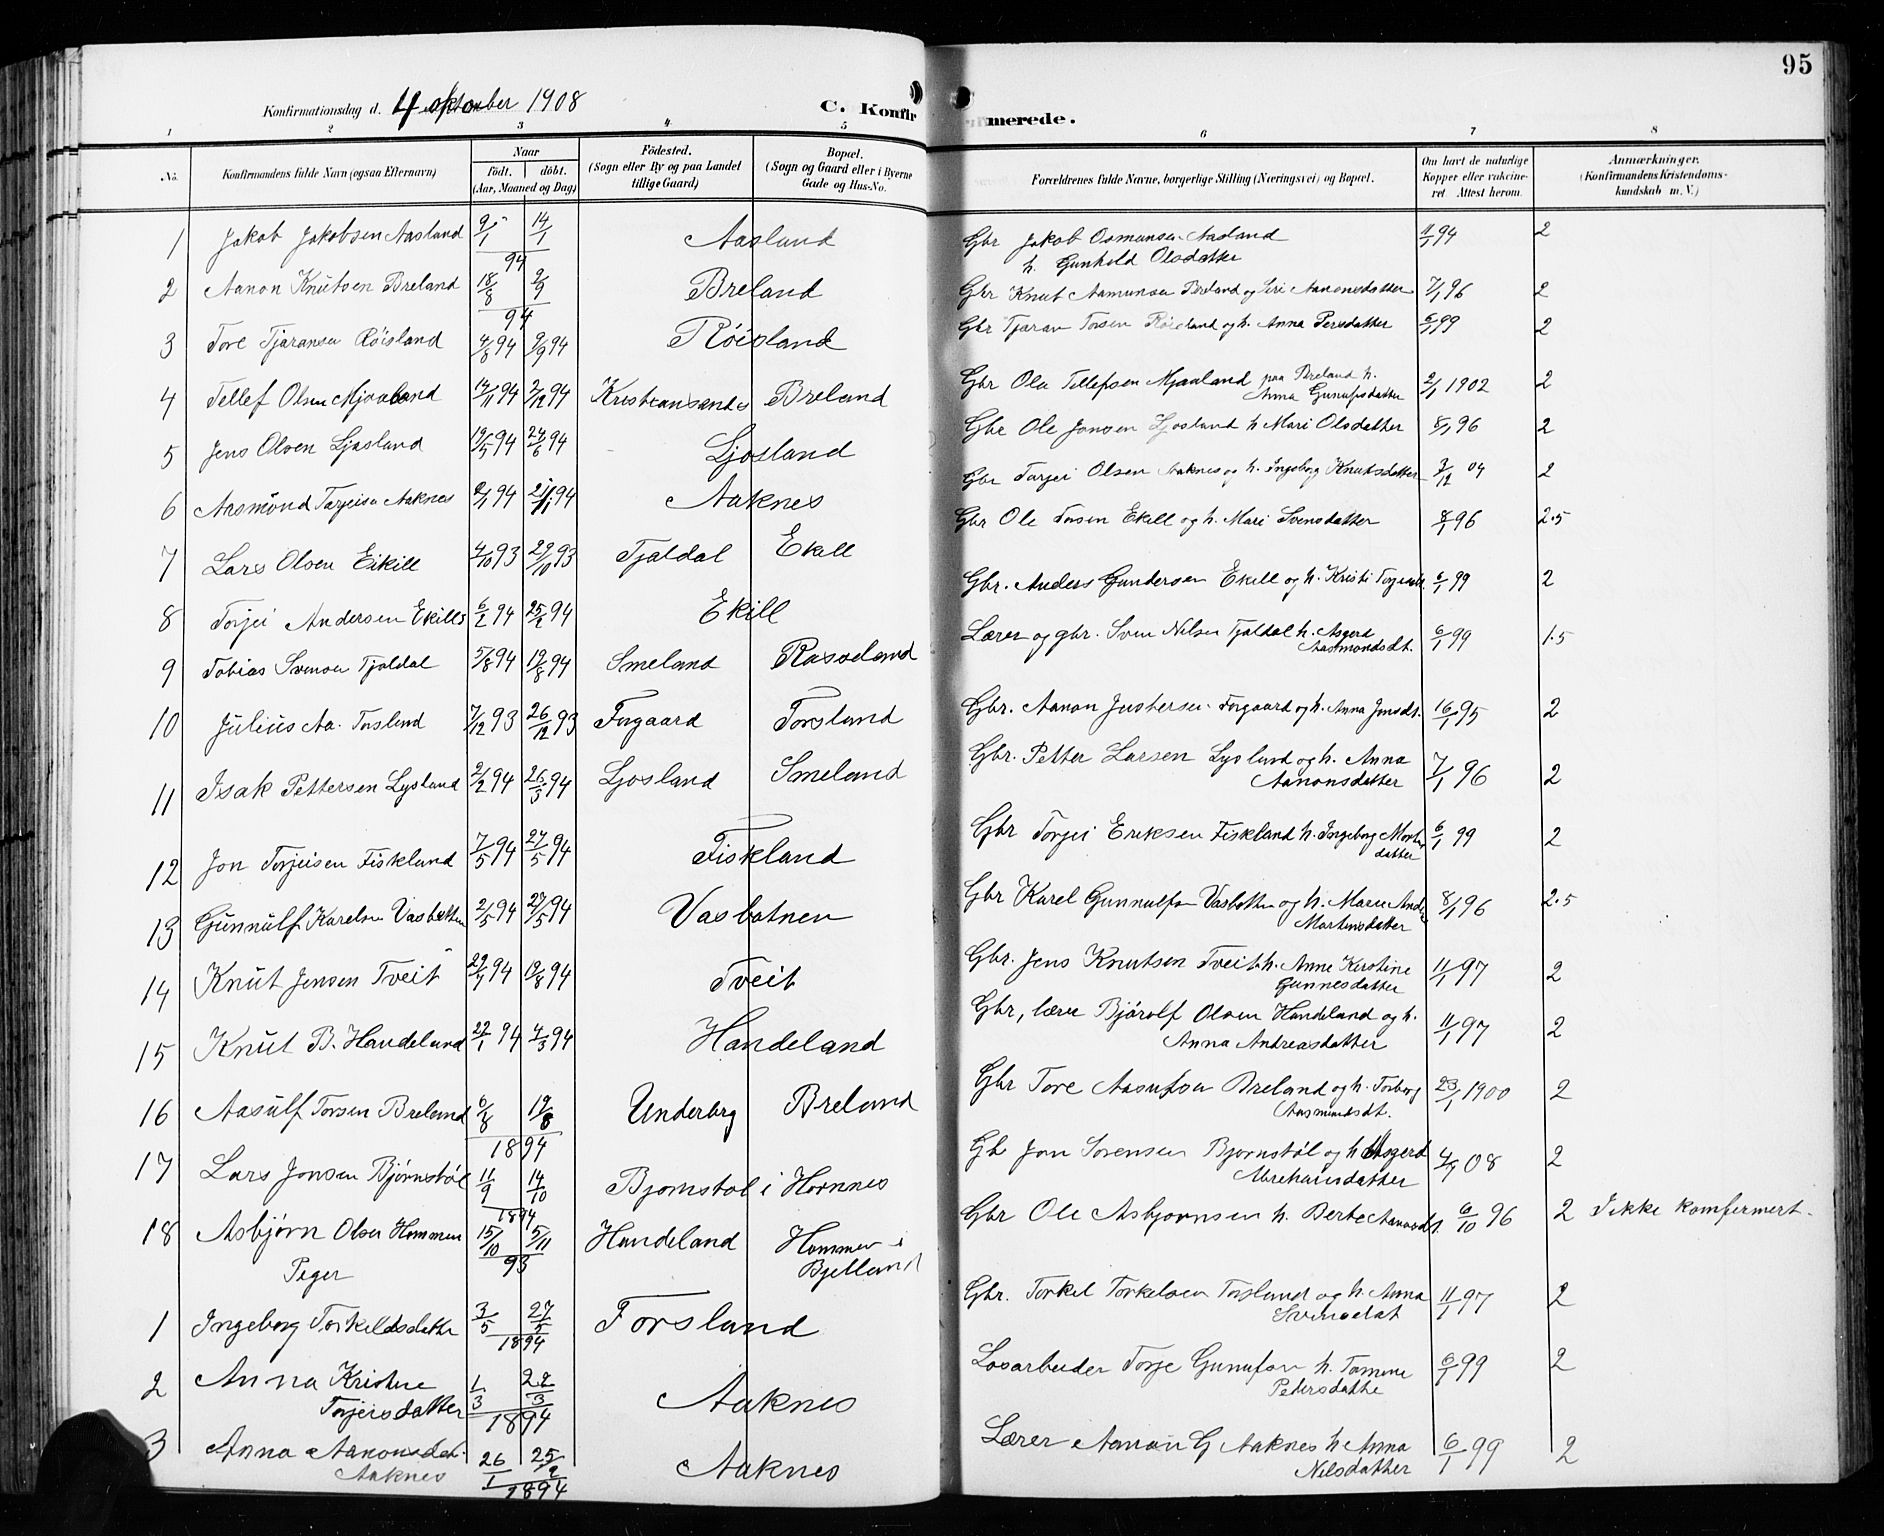 95
Konfirmationsdag d. 4 oktober 1908
C. Konfirmerede.
1 2 3 4 5 6 7 8
No.
Konfirmandens fulde Navn (ogsaa Efternavn)
Naar
födt. döbt.
(Aar, Maaned og Dag)
Födested.
(Sogn eller By og paa Landet
tillige Gaard)
Bopæl.
(Sogn og Gaard eller i Byerne
Gade og Hus-No.
Forældrenes fulde Navne, borgerlige Stilling (Næringsvei) og Bopæl.
Om havt de naturlige
Kopper eller vakcine-
ret Attest herom.
Anmærkninger.
(Konfirmandens Kristendoms-
kundskab m. V.)
1 Jakob Jakobsen Aasland 9/1 14/1 94 Aasland Gbr Jakob Osmunsen Aasland 94 2
h. Gunhild Olsdatter
2 Aanon Knutsen Breland 18/8 9/9 94 Breland Gbr Knut Aamunsen Breland og Siri Aanonsdatter 7/1 96 2
3 Tore Tjøransen Röisland 4/8 94 9/9 94 Röisland Gbr Tjøran Torsen Röisland og h. Anna Persdatter 6/1 99 2
4 Tellef Olsen Mjaaland 14/11 94 2/12 94 Kristiansands Breland Gbr Ola Tellefsen Mjaaland paa Breland h. 2/1 1902 2
Anna Gunufsdatter
5 Jens Olsen Ljosland 19/5 94 24/6 94 Ljosland Gbr Ole Jonsen Ljosland h Mari Olsdatter 8/1 96 2
6 Aasmund Tarjeisen Aaknes 2/1 94 21/1 94 Aaknes Gbr Tarjei Olsen Aaknes og h. Ingeborg Knutsdatter 3/12 04 2
7 Lars Olsen Eikill 4/10 93 29/10 93 Tjaldal Ekill Gbr Ole Torsen Ekill og h. Mari Svensdatter 8/1 96 2.5
8 Torjei Andersen Ekill 6/2 94 25/2 94 Ekill Gbr. Anders Gundersen Ekill og h. Kristi 6/1 99 2
9 Tobias Svensen Tjaldal 5/8 94 19/8 94 Smeland Rosseland Lærer og gbr. Sven Nilsen Tjaldal h. Asgerd 6/1 99 1.5
Aasmundsdt.
10 Julius Aa. Torsland 7/12 93 26/12 93 Forgaard Torsland Gbr. Aanon Justersen Forgaard og h. Anna Jensdt. 16/1 95 2
11 Isak Pettersen Lysland 2/2 94 26/3 94 Ljosland Smeland Gbr. Petter Larsen Lysland og h. Anna 7/1 96 2
Aanonsdatter
12 Jon Torjeisen Fiskland 7/5 94 27/5 94 Fiskland Gbr Torjei Eriksen Fiskland h. Ingeborg 6/1 99 2
datter
13 Gunnulf Karelsen Vasbotten 2/5 94 27/5 94 Vasbotnen Gbr Karel Gunnulfsen Vasbotten og h. Maren 8/1 96 2.5
Martinsdatter
14 Knut Jensen Tveit 29/7 94 19/8 94 Tveit Gbr. Jens Knutsen Tveit h. Anne Kirstine 11/1 97 2
Gunnesdatter
15 Knut B. Handeland 22/1 94 4/3 94 Handeland Gbr, lærer Bjórulf Olsen Handeland og h. 11/1 97 2
Anna Andreasdatter
16 Aasulf Torsen Breland 6/8 19/8 1894 Underbrg Breland Gbr Tore Aasufsen Breland og h. Torborg 23/1 1900 2
Aasmundsdt.
17 Lars Jonsen Bjørnstøl 11/9 14/10 1894 Bjornstøl i Hornnes Gb Jon Sorensen Bjornstøl og h Asgerd 08 2
Abrehamsdatter
18 Asbjørn Olsen Hommen 15/10 5/11 93 Handeland Hommen i Bjelland Gbr Ole Asbjørnsen h. Berte Aanonsdt. 6/10 96 2 Ikke komfermert.
Piger
1 Ingeborg Torkeldsdatter 3/5 27/5 1894 Torsland Gbr. Torkel Torkelsen Torsland og h. Anna 11/1 97 2
Svensdat
2 Anna Kristine 1/3 22/3 1894 Aaknes Losarbeider Torje Gunufsen h. Tomine 6/1 99 2
Torjeisdatter Petersdatte
3 Anna Aanonsdat. 26/1 25/2 1894 Aaknes Lærer Aanon G Aaknes h Anna 6/1 99 2
Aaknes Nilsdatter